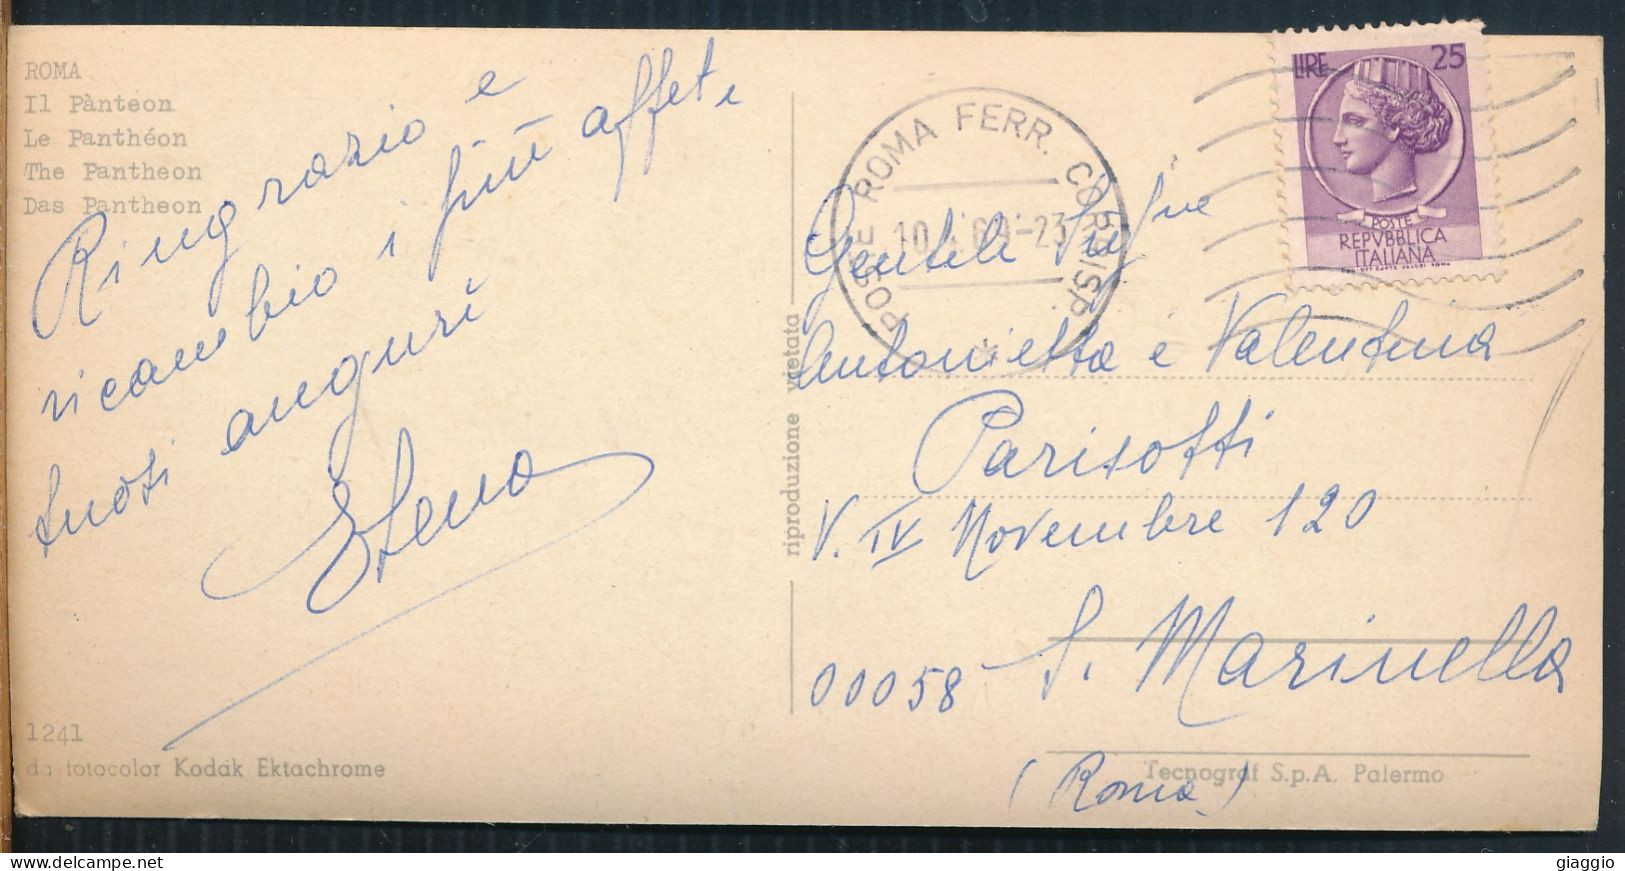 ROMA
Il Pànteon
Le Panthéon
The Pantheon
Das Pantheon
Ringrazio e
ricambio i più affet-
tuosi auguri
Elena
1241
da fotocolor Kodak Ektachrome
riproduzione vietata
POSTE ROMA FERR. CORRISP.
LIRE 25
POSTE
REPVBBLICA
ITALIANA
Gentili Sig.ne
Antonietta e Valentina
Parisotti
V. IV Novembre 120
00058 S. Marinella
(Roma)
Tecnograf S.p.A. Palermo
giaggio